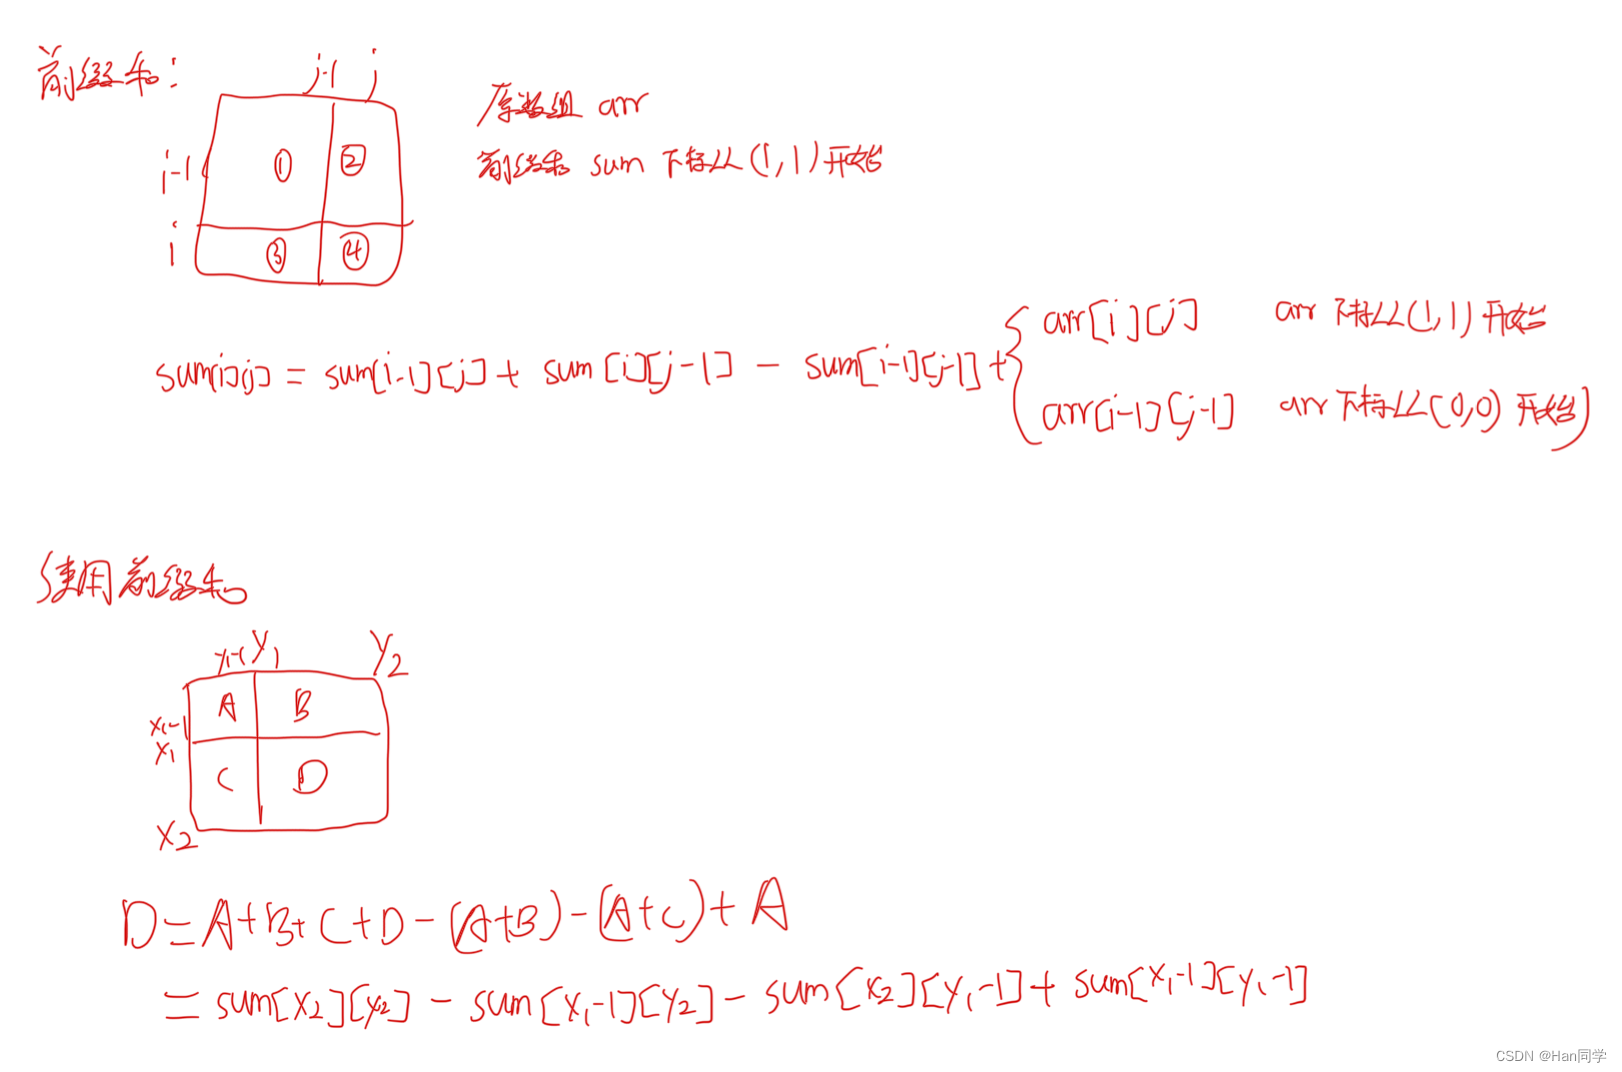 前缀和:
j-1 j
原数组 arr
i-1 ① ②
前缀和 sum 下标从(1,1)开始
i ③ ④
arr[i][j] arr 下标从(1,1)开始
sum[i][j] = sum[i-1][j] + sum[i][j-1] - sum[i-1][j-1] + {
arr[i-1][j-1] arr下标从(0,0)开始)
使用前缀和
y₁-1 y₁ y₂
A B
x₁-1
x₁
C D
x₂
D=A+B+C+D-(A+B)-(A+C)+A
=sum[x₂][y₂] - sum[x₁-1][y₂] - sum[x₂][y₁-1] + sum[x₁-1][y₁-1]
CSDN @Han同学